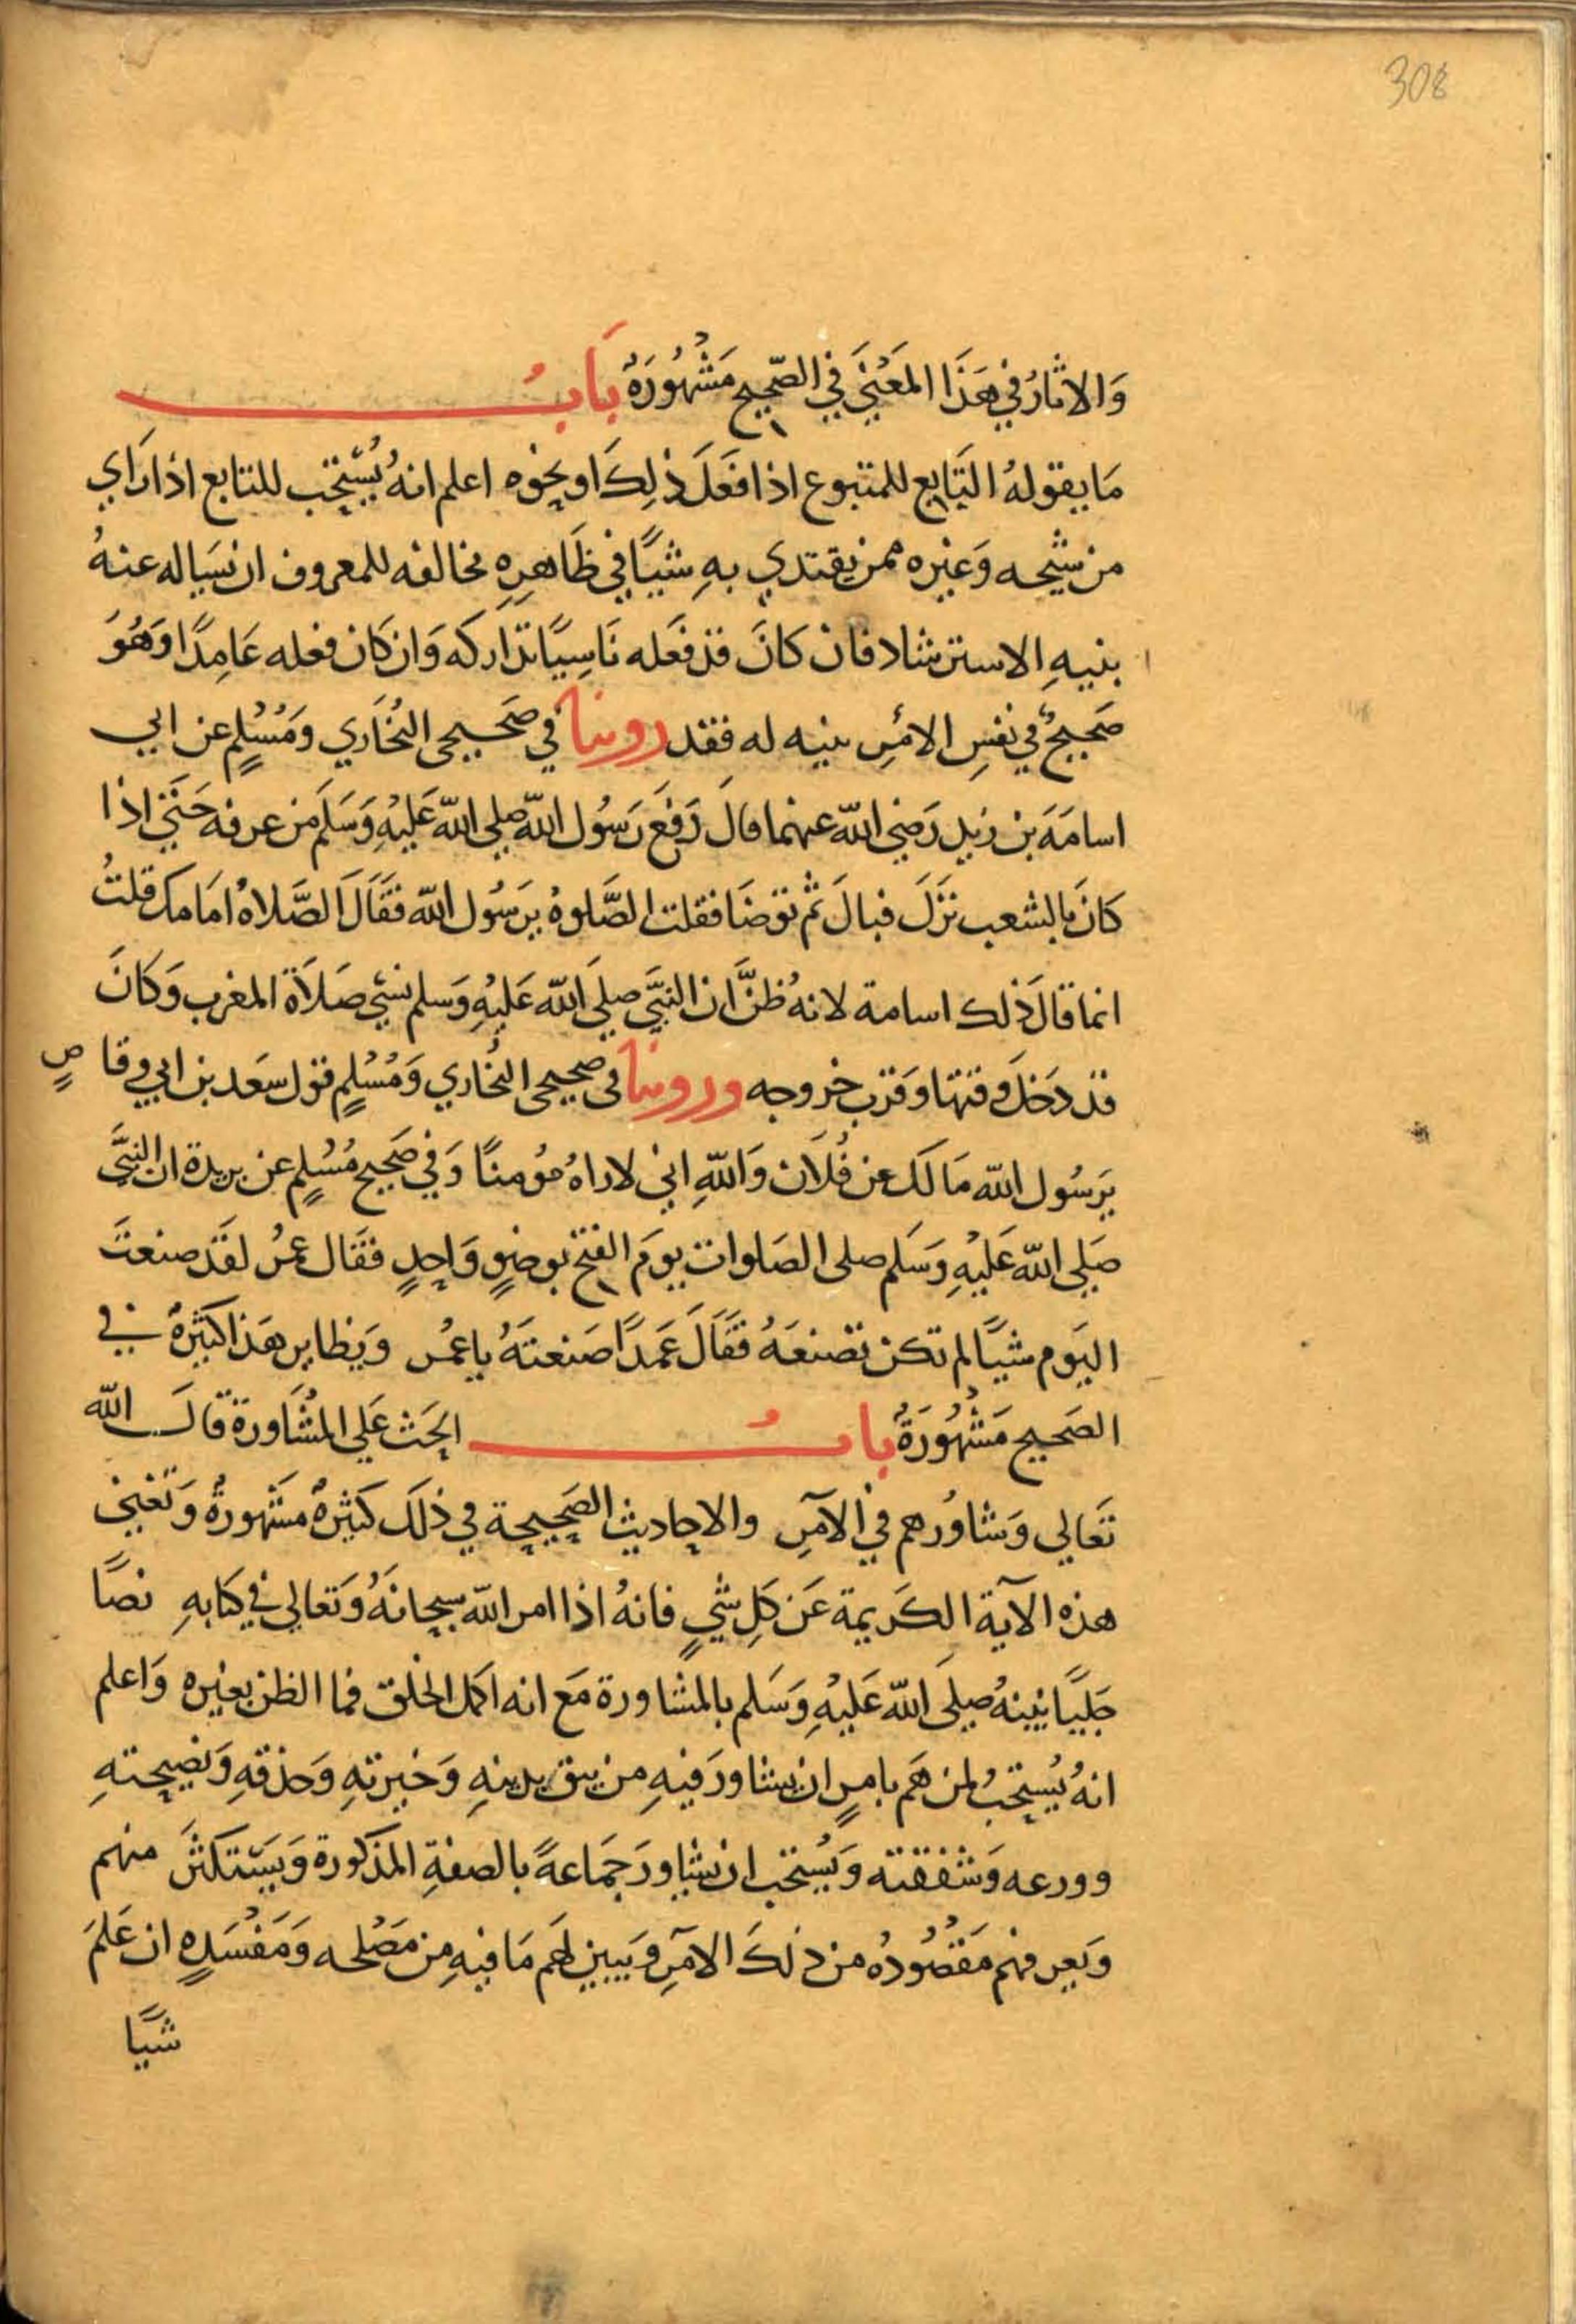 308
وَالاثارُ في هَذَا المَعْنَي في الصّحِيح مَشْهُورَةٌ بَابُ
مَا يقولهُ التَابع للمتبوع اذا فَعَلَ ذلِكَ او نحوه اعلم انهُ يُسْتَحَب للتابع اذا رَاي
من شيحه وَغيره ممن يقتدي بهِ شيًا في ظَاهرِهِ مخالفه للمعروف ان يسَياله عنهُ
بنيهِ الاسترشاد فان كَانَ قد فعَله نَاسِيًا تدَاركه وَان كَان فعله عَامِدًا وَهُوَ
صَحِيحٌ في نفسِ الامْرِ بنيه له فقد روينا في صَحيحي البُخَاري وَمُسْلِمٍ عن ابي
اسامَة بن زيد رَضي الله عنهما قالَ دَفعَ رَسُول الله صلي الله عَليْهِ وَسَلم من عرفه حَتي اذا
كانَ بالشعب نزَلَ فبالَ ثم توضَا فقلت الصَّلوة يرَسُول الله فقَالَ الصَّلاهُ امَامك قلتُ
انما قالَ ذلك اسامة لانهُ ظنَّ ان النبيَّ صلي الله عَليْهِ وَسلم نسي صَلاَة المغرب وَكانَ
قد دَخلَ وقتها وَقرب خروجه وروينا في صحيحي البُخاري وَمُسْلِمٍ قول سعَد بن ابي وقاصٍ
يرَسُول الله مَا لكَ عن فُلاَن وَاللهِ اني لاراهُ مُومنًا وَفي صَحِيح مُسْلِمٍ عن بريدة ان النبيَّ
صَلي الله عَليْهِ وَسَلم صلى الصَلوات يومَ الفتح بوضوٍ وَاحِدٍ فقَال عمرُ لقَد صنعتَ
اليَوم شيًا لم تكن تصْنعَهُ فقَالَ عَمدًا صَنعتَهُ ياعمُر وَنظاير هَذا كثيرةٌ في
الصَحيح مَشْهُورَةٌ بابُ الحَث عَلي المشَاورة قالَ الله
تَعَالي وَشاورْهم في الاَمرِ والاحاديث الصَحِيحة في ذلكَ كثيرةٌ مشهورةٌ وَتغني
هذه الآية الكَريمة عَن كلِ شيءٍ فانهُ اذا امر الله سبحانهُ وَتعالي في كتابهِ نصًا
جَليًا نبيهُ صلي الله عَليْهِ وَسَلم بالمشاورة مَع انه اكمل الخلق فما الظن بغيره وَاعلم
انهُ يُستحَبُ لمن هَم بامرٍ ان يشاورَ فيهِ من يثق بدينهِ وَخبرتهِ وَحذقهِ وَنصيحتهِ
وورعه وَشفقته وَيُستحب ان يشاورَ جَمَاعةً بالصفةِ المذكورة وَيَستكثرَ منهم
وَيعرفهم مَقصُودُه من ذلكَ الامَرِ وَيبين لهم مَا فيهِ من مَصْلحه وَمَفسَدهِ ان عَلمَ
شيًا